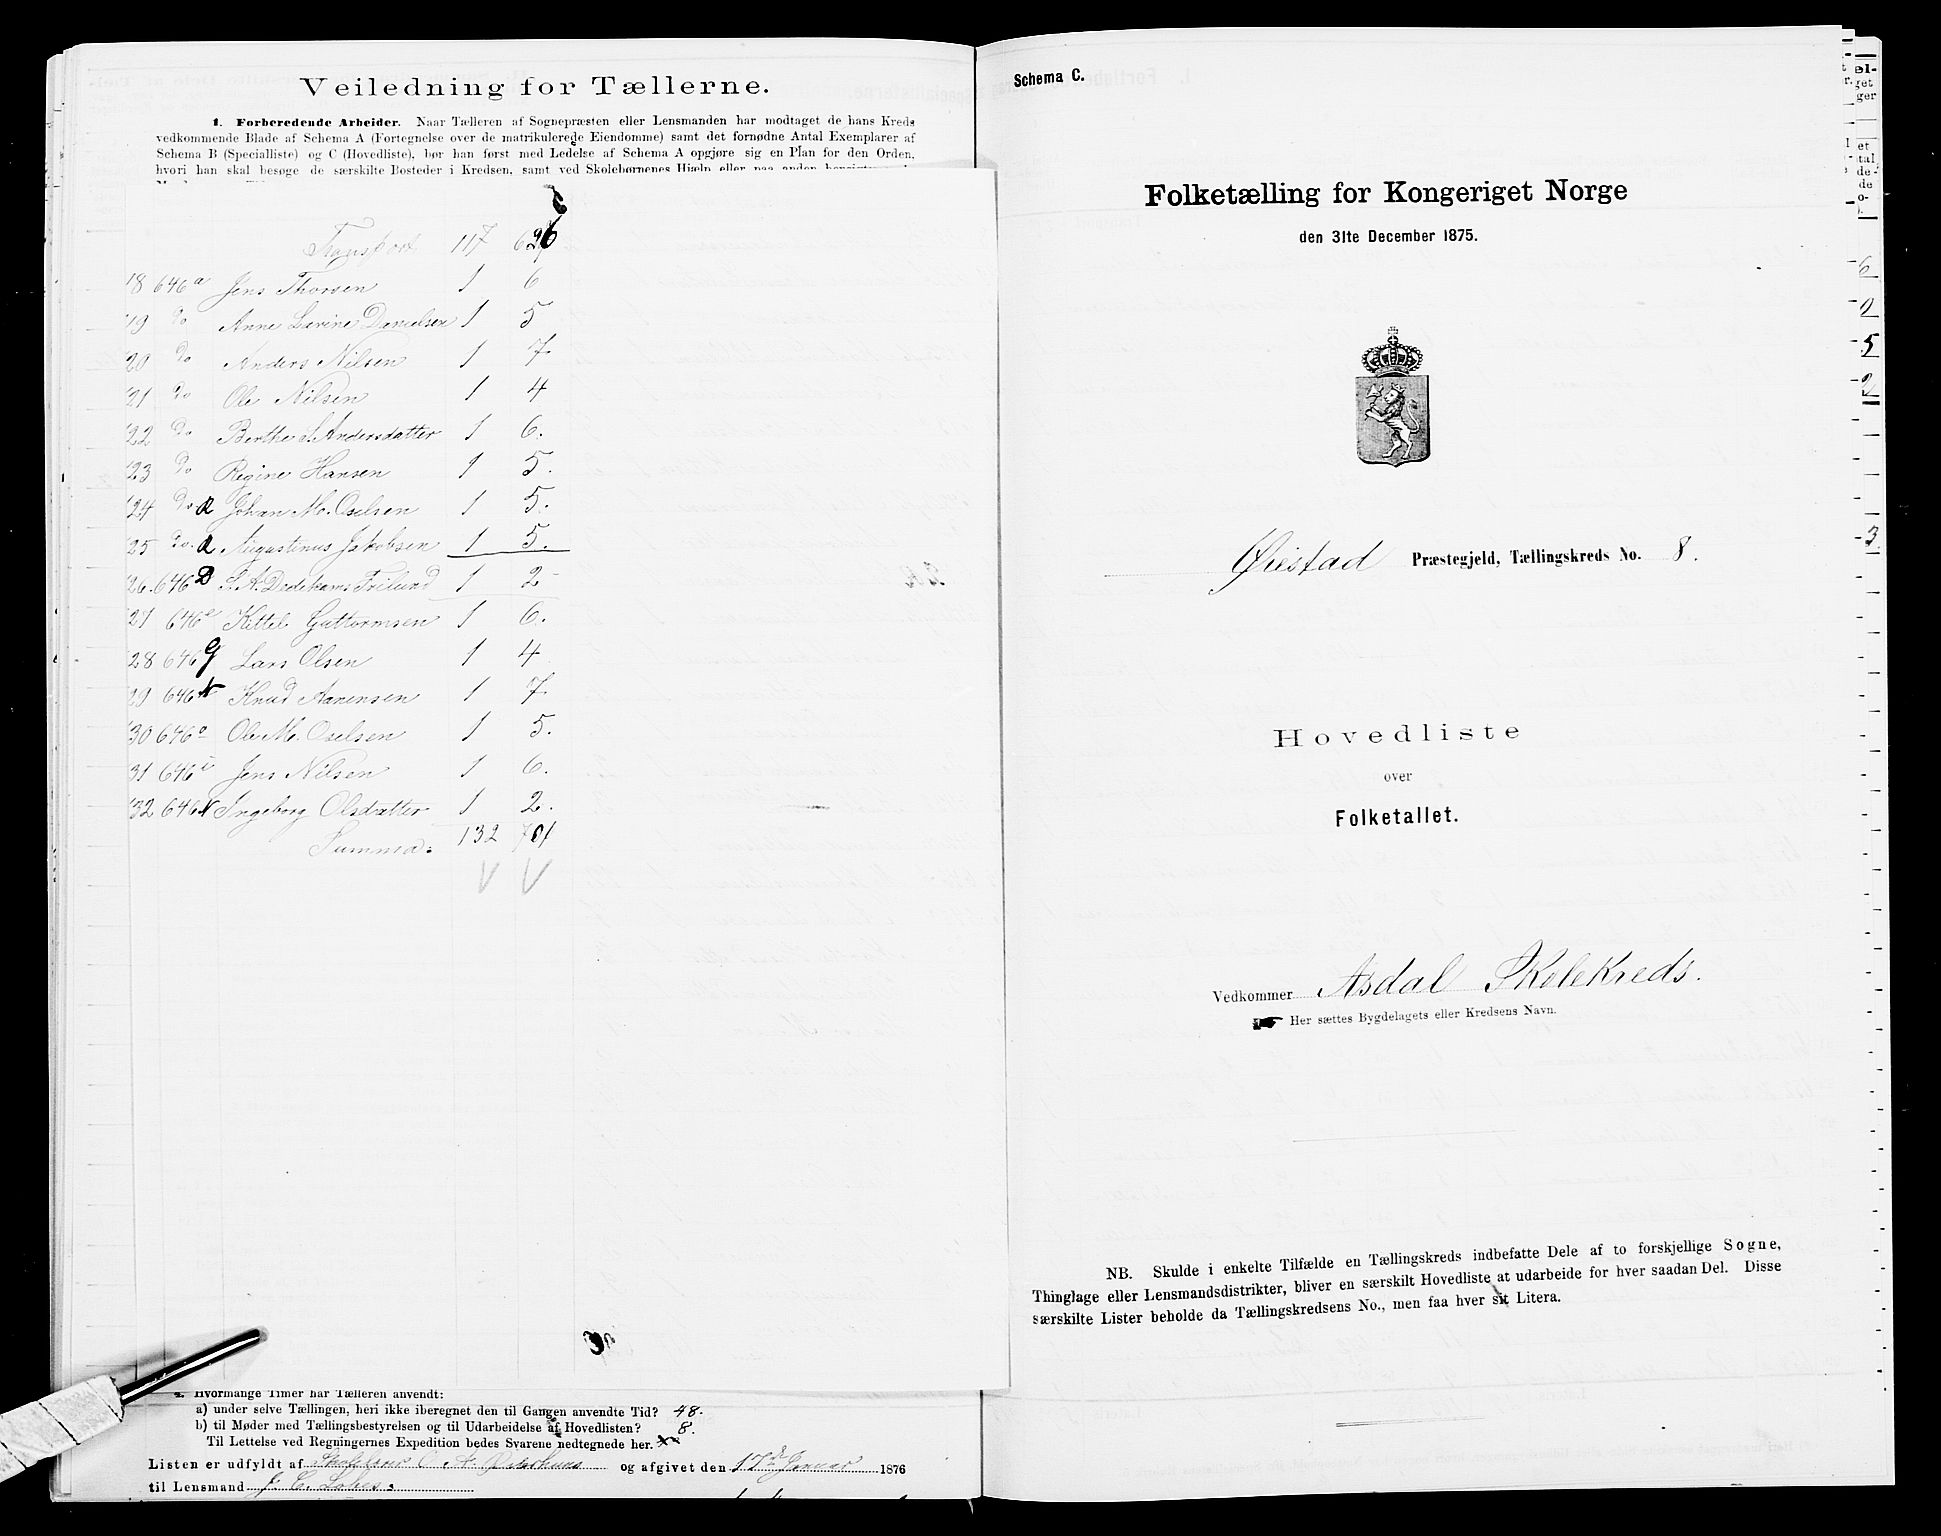 Veiledning for Tællerne.
1. Forberedende Arbeider. Naar Tælleren af Sognepræsten eller Lensmanden har modtaget de hans Kreds
vedkommende Blade af Schema A (Fortegnelse over de matrikulerede Eiendomme) samt det fornødne Antal Exemplarer af
Schema B (Specialliste) og C (Hovedliste), bør han først med Ledelse af Schema A opgjøre sig en Plan for den Orden,
hvori han skal besøge de særskilte Bosteder i Kredsen, samt ved Skolebørnenes Hjælp eller paa anden
Transport 117
18 646a Jens Thorsen 1 6
19 do Anne Lavine Danielsen 1 5
20 do Anders Nilsen 1 7
21 do Ole Nilsen 1 4
22 do Berthe S. Andersdatter 1 6.
23 do Regine Hansen 1 5.
24 do a Johan M. Oselsen 1 5.
25 do. a Augustinus Jakobsen 1 5.
26. 646 D S. A. Dedekams Frilund 1 2
27 646e Kittel Guttormsen 1 6.
28 646 g Lars Olsen 1 4
29 646 Knud Aanensen 1 7.
30 646o Ole M. Oselsen 1 5.
31 646i Jens Nilsen 1 6.
32 646 Ingeborg Olsdatter 1 2.
Summa: 132 701
4. Hvormange Timer har Tælleren anvendt:
a) under selve Tællingen, heri ikke iberegnet den til Gangen anvendte Tid? 48.
b) til Møder med Tællingsbestyrelsen og til Udarbeidelse af Hovedlisten? 8.
Til Lettelse ved Regningernes Expedition bedes Svarene nedtegnede her.
Listen er udfyldt af O. A. og afgivet den 17de Januar 1876
til Lensmand J. C.
Schema C.
Folketælling for Kongeriget Norge
den 31te December 1875.
Øiestad Præstegjeld, Tællingskreds No. 8.
Hovedliste
over
Folketallet.
Vedkommer Asdal Skolekreds.
Her sættes Bygdelagets eller Kredsens Navn.
NB. Skulde i enkelte Tilfælde en Tællingskreds indbefatte Dele af to forskjellige Sogne,
Thinglage eller Lensmandsdistrikter, bliver en særskilt Hovedliste at udarbeide for hver saadan Del. Disse
særskilte Lister beholde da Tællingskredsens No., men faa hver sit Litera.